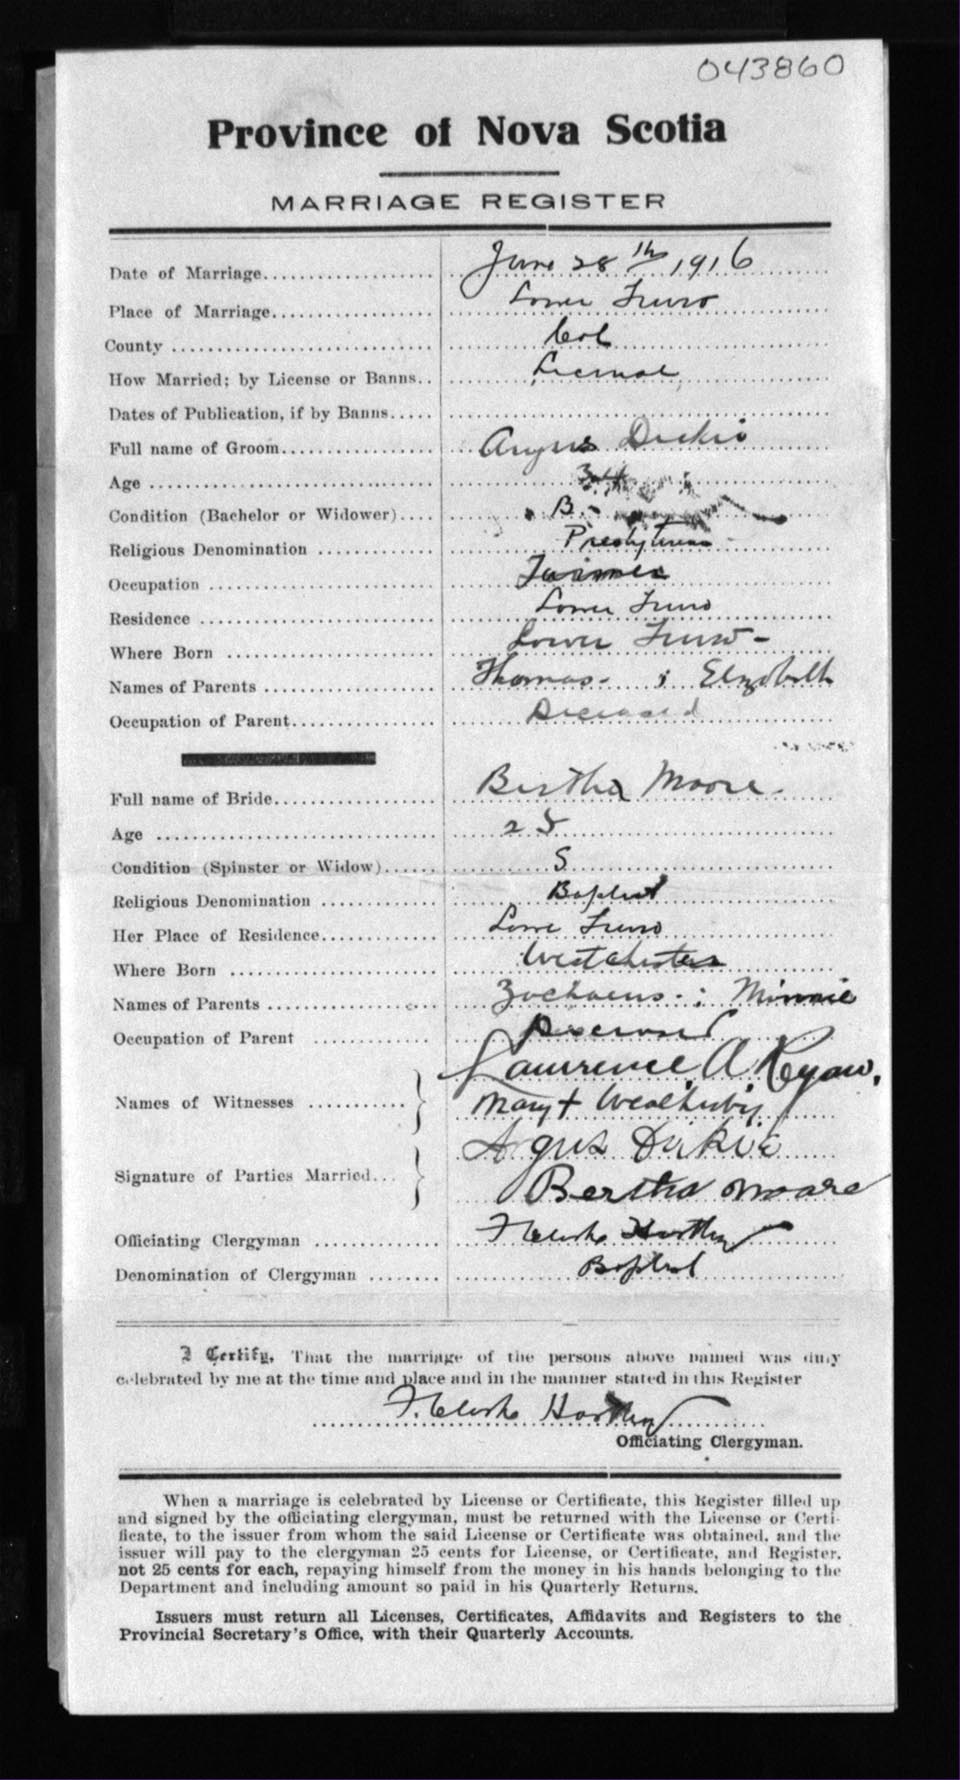 043860
Province of Nova Scotia
MARRIAGE REGISTER
Date of Marriage.................... June 28th 1916
Place of Marriage.................. Lower Truro
County ............................. Col
How Married; by License or Banns.. License
Dates of Publication, if by Banns.....
Full name of Groom................. Angus Dickie
Age ................................ 34
Condition (Bachelor or Widower).... B.
Religious Denomination ............. Presbyterian
Occupation ......................... Farmer
Residence .......................... Lower Truro
Where Born ....................... Lower Truro-
Names of Parents ................... Thomas- ; Elizabeth
Occupation of Parent................ Deceased
Full name of Bride.................. Bertha Moore.
Age ............................... 25
Condition (Spinster or Widow)...... S
Religious Denomination ............. Baptist
Her Place of Residence............. Lower Truro
Where Born ....................... Westchester
Names of Parents ................... ; Minnie
Occupation of Parent ............. Deceased
Lawrence A Ryan.
Names of Witnesses ........... Mary Weatherby
Argus Dickie
Signature of Parties Married...
Bertha Moore
Officiating Clergyman .............. F. Clarke Hartley
Denomination of Clergyman ........ Baptist
I Certify, That the marriage of the persons above named was duly
celebrated by me at the time and place and in the manner stated in this Register
F. Clarke Hartley
Officiating Clergyman.
When a marriage is celebrated by License or Certificate, this Register filled up
and signed by the officiating clergyman, must be returned with the License or Certi-
ficate, to the issuer from whom the said License or Certificate was obtained, and the
issuer will pay to the clergyman 25 cents for License, or Certificate, and Register,
not 25 cents for each, repaying himself from the money in his hands belonging to the
Department and including amount so paid in his Quarterly Returns.
Issuers must return all Licenses, Certificates, Affidavits and Registers to the
Provincial Secretary's Office, with their Quarterly Accounts.